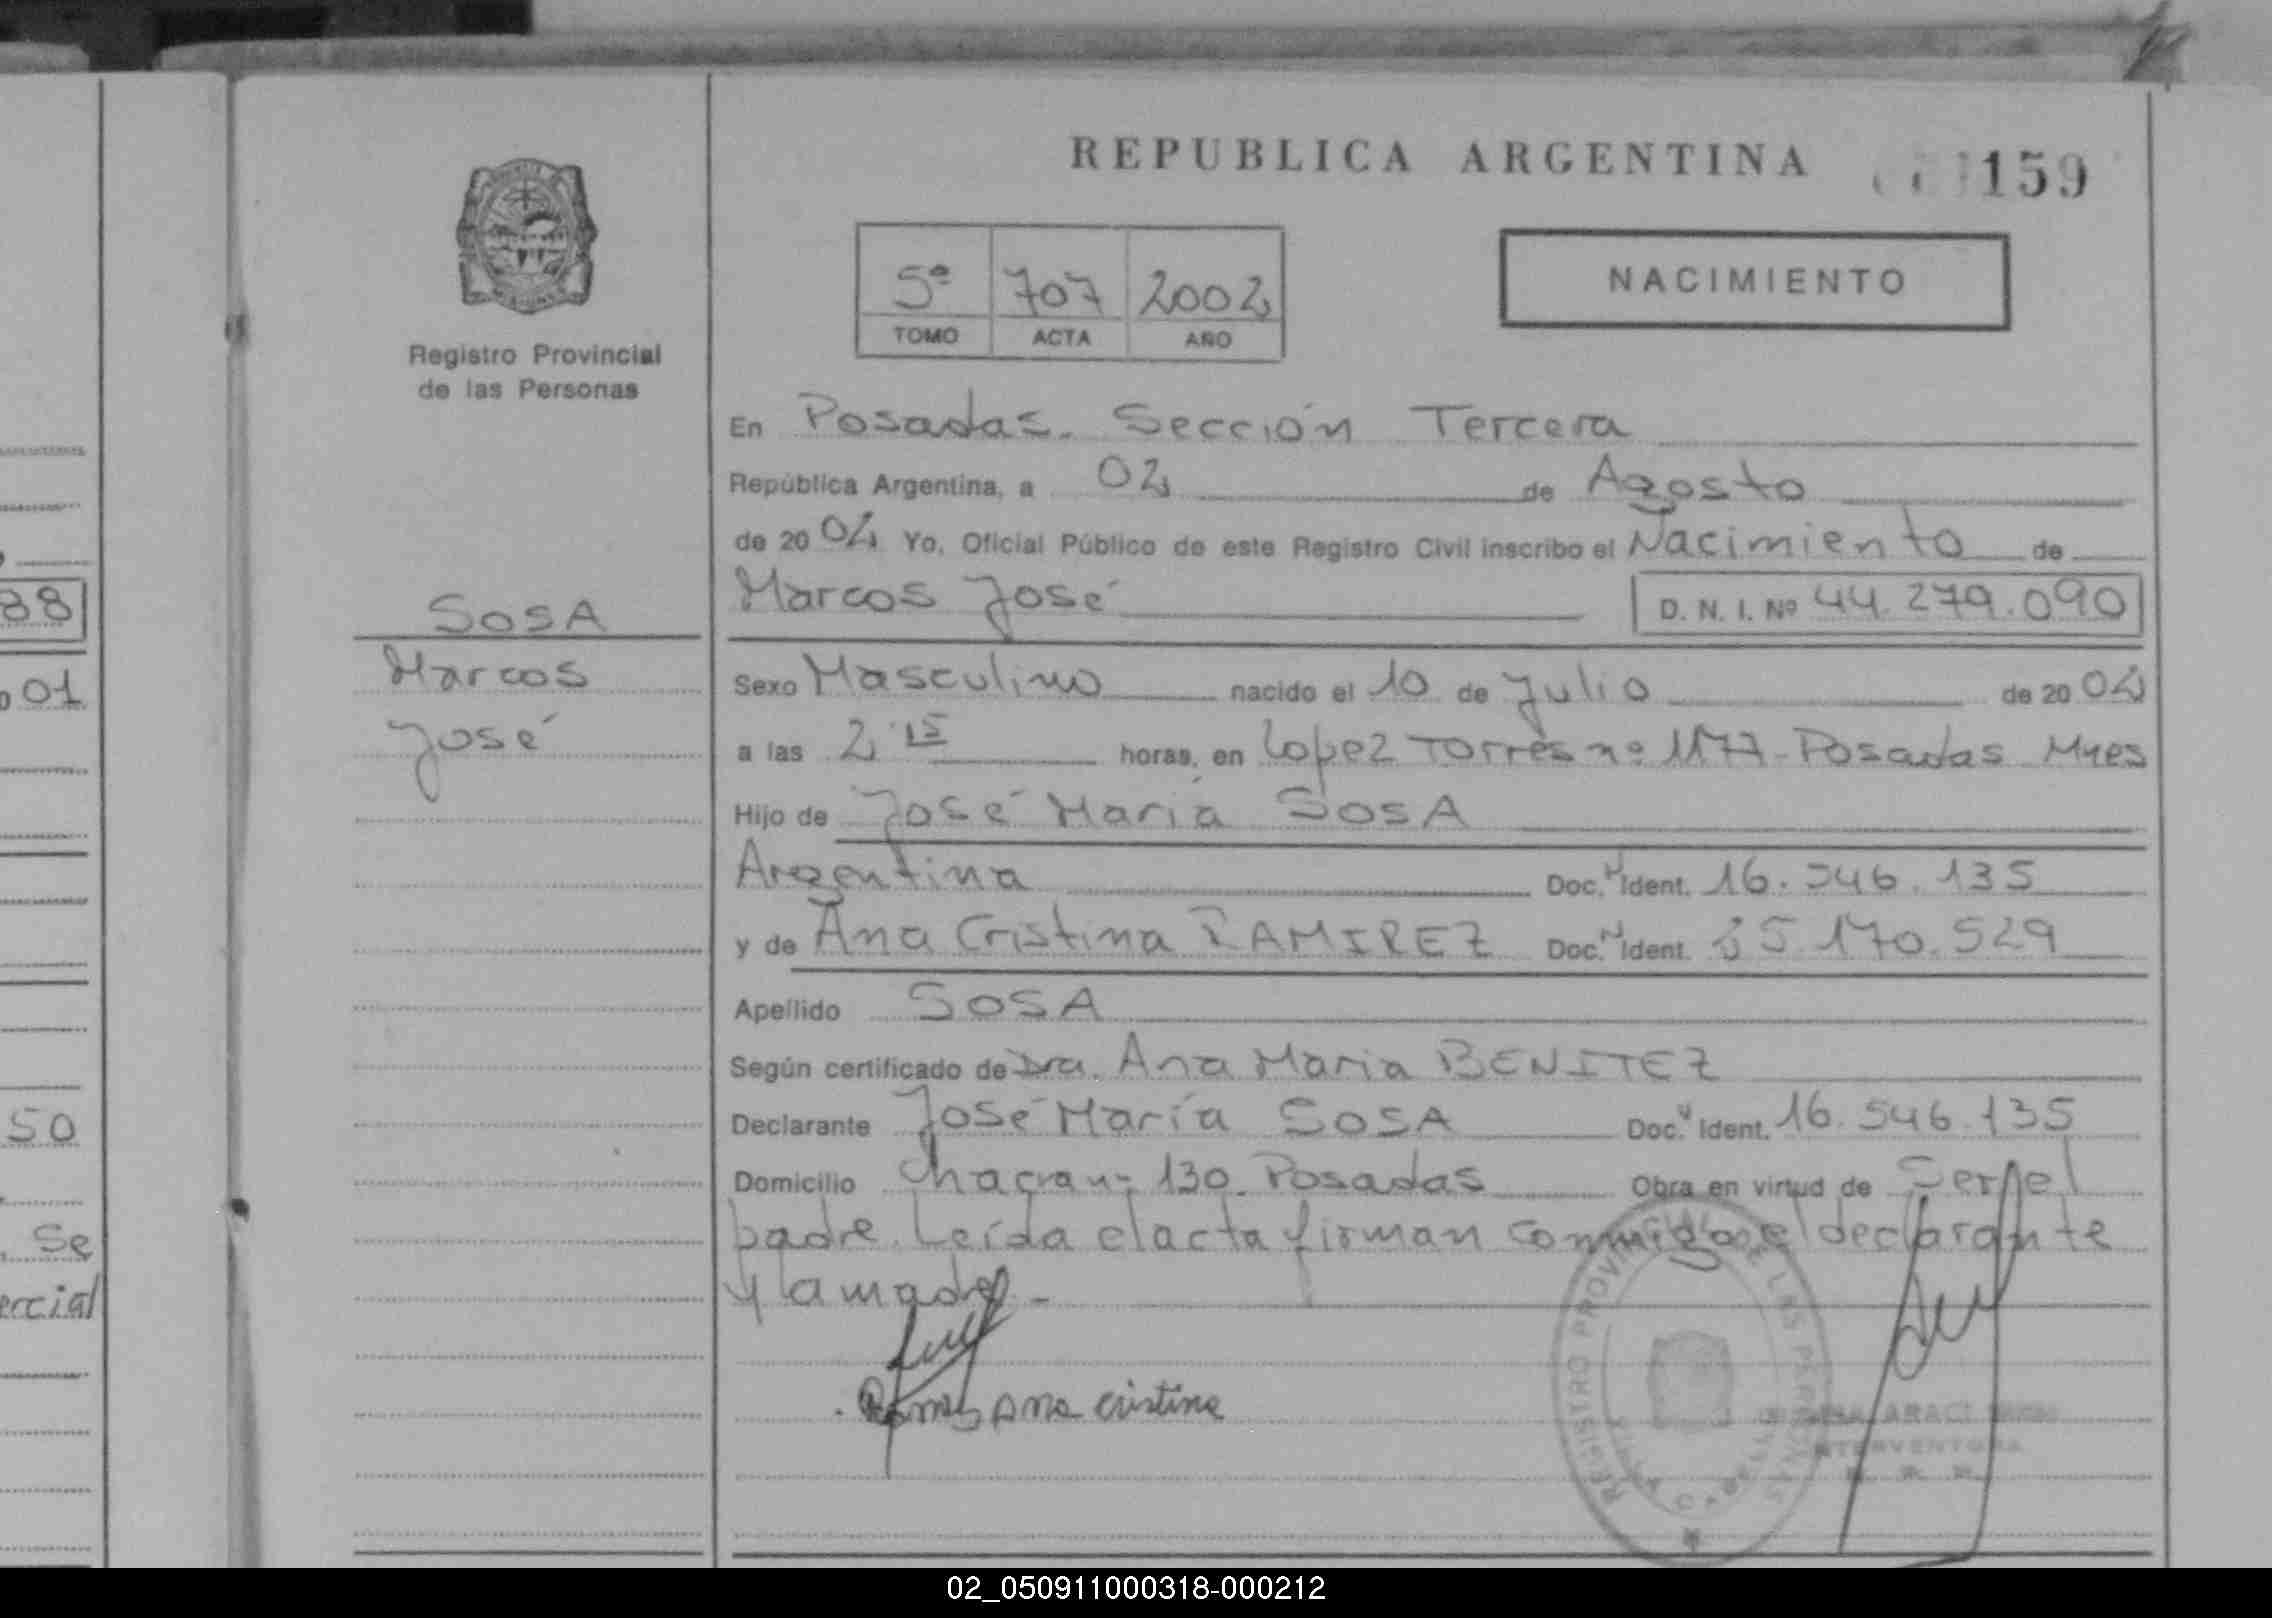 REPUBLICA ARGENTINA
159
5º 707 2002
TOMO ACTA AÑO
NACIMIENTO
Registro Provincial
de las Personas
En Posadas. Sección Tercera
República Argentina, a 02 de Agosto
de 20 02 Yo, Oficial Público de este Registro Civil inscribo el Nacimiento de
Marcos José D. N. I. Nº 44.279.090
SOSA
Marcos
José
Sexo Masculino nacido el 10 de Julio de 20 02
a las 2 15 horas, en Lopez Torres nº 1177 - Posadas Mnes
Hijo de José María SOSA
Argentina Doc. Ident. 16.546.135
y de Ana Cristina RAMIREZ Doc. Ident. 5.170.529
Apellido SOSA
Según certificado de Dra. Ana Maria BENITEZ
Declarante José María SOSA Doc. Ident. 16.546.135
Domicilio Chacra 130. Posadas Obra en virtud de Ser el
padre. Leída el acta firman conmigo el declarante
y la madre -
Ana cristina
REGISTRO PROVINCIAL DE LAS PERSONAS
ARACI
INTERVENTORA
88
01
50
Se
ercial
02_050911000318-000212